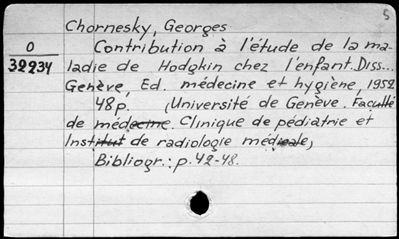 5
Chornesky, Georges
0 Contribution à l'étude de la ma-
32234 ladie de Hodgkin chez l'enfant. Diss...
Genève, Ed. médecine et hygiène, 1952
48p. (Université de Genève. Faculté
de médecine. Clinique de pédiatrie et
Institut de radiologie médicale)
Bibliogr.: p. 42-48.